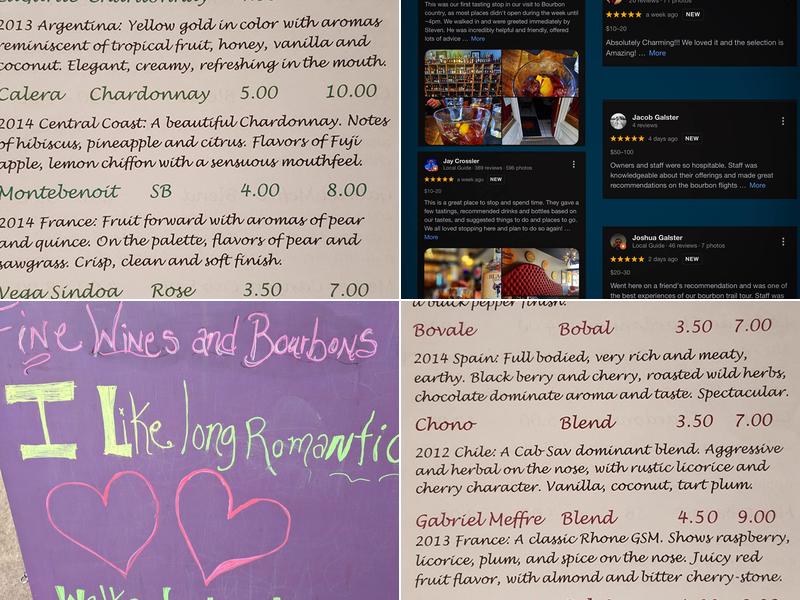 2013 Argentina: Yellow gold in color with aromas
reminiscent of tropical fruit, honey, vanilla and
coconut. Elegant, creamy, refreshing in the mouth.
Calera Chardonnay 5.00 10.00
2014 Central Coast: A beautiful Chardonnay. Notes
of hibiscus, pineapple and citrus. Flavors of Fuji
apple, lemon chiffon with a sensuous mouthfeel.
Montebenoit SB 4.00 8.00
2014 France: Fruit forward with aromas of pear
and quince. On the palette, flavors of pear and
sawgrass. Crisp, clean and soft finish.
Vega Sindoa Rose 3.50 7.00
This was our first tasting stop in our visit to Bourbon
country, as most places didn't open during the week until
~4pm. We walked in and were greeted immediately by
Steven. He was incredibly helpful and friendly, offered
lots of advice ... More
Jay Crossler
Local Guide · 389 reviews · 596 photos
a week ago NEW
$10–20
This is a great place to stop and spend time. They gave a
few tastings, recommended drinks and bottles based on
our tastes, and suggested things to do and places to go.
We all loved stopping here and plan to do so again! ...
More
a week ago NEW
$10–20
Absolutely Charming!!! We loved it and the selection is
Amazing! ... More
Jacob Galster
4 reviews
4 days ago NEW
$50–100
Owners and staff were so hospitable. Staff was
knowledgeable about their offerings and made great
recommendations on the bourbon flights ... More
Joshua Galster
Local Guide · 46 reviews · 7 photos
2 days ago NEW
$20–30
Went here on a friend's recommendation and was one of
the best experiences of our bourbon trail tour. Staff was
Fine Wines and Bourbons
I Like long Romantic
a black pepper finish.
Bovale Bobal 3.50 7.00
2014 Spain: Full bodied, very rich and meaty,
earthy. Black berry and cherry, roasted wild herbs,
chocolate dominate aroma and taste. Spectacular.
Chono Blend 3.50 7.00
2012 Chile: A Cab Sav dominant blend. Aggressive
and herbal on the nose, with rustic licorice and
cherry character. Vanilla, coconut, tart plum.
Gabriel Meffre Blend 4.50 9.00
2013 France: A classic Rhone GSM. Shows raspberry,
licorice, plum, and spice on the nose. Juicy red
fruit flavor, with almond and bitter cherry-stone.